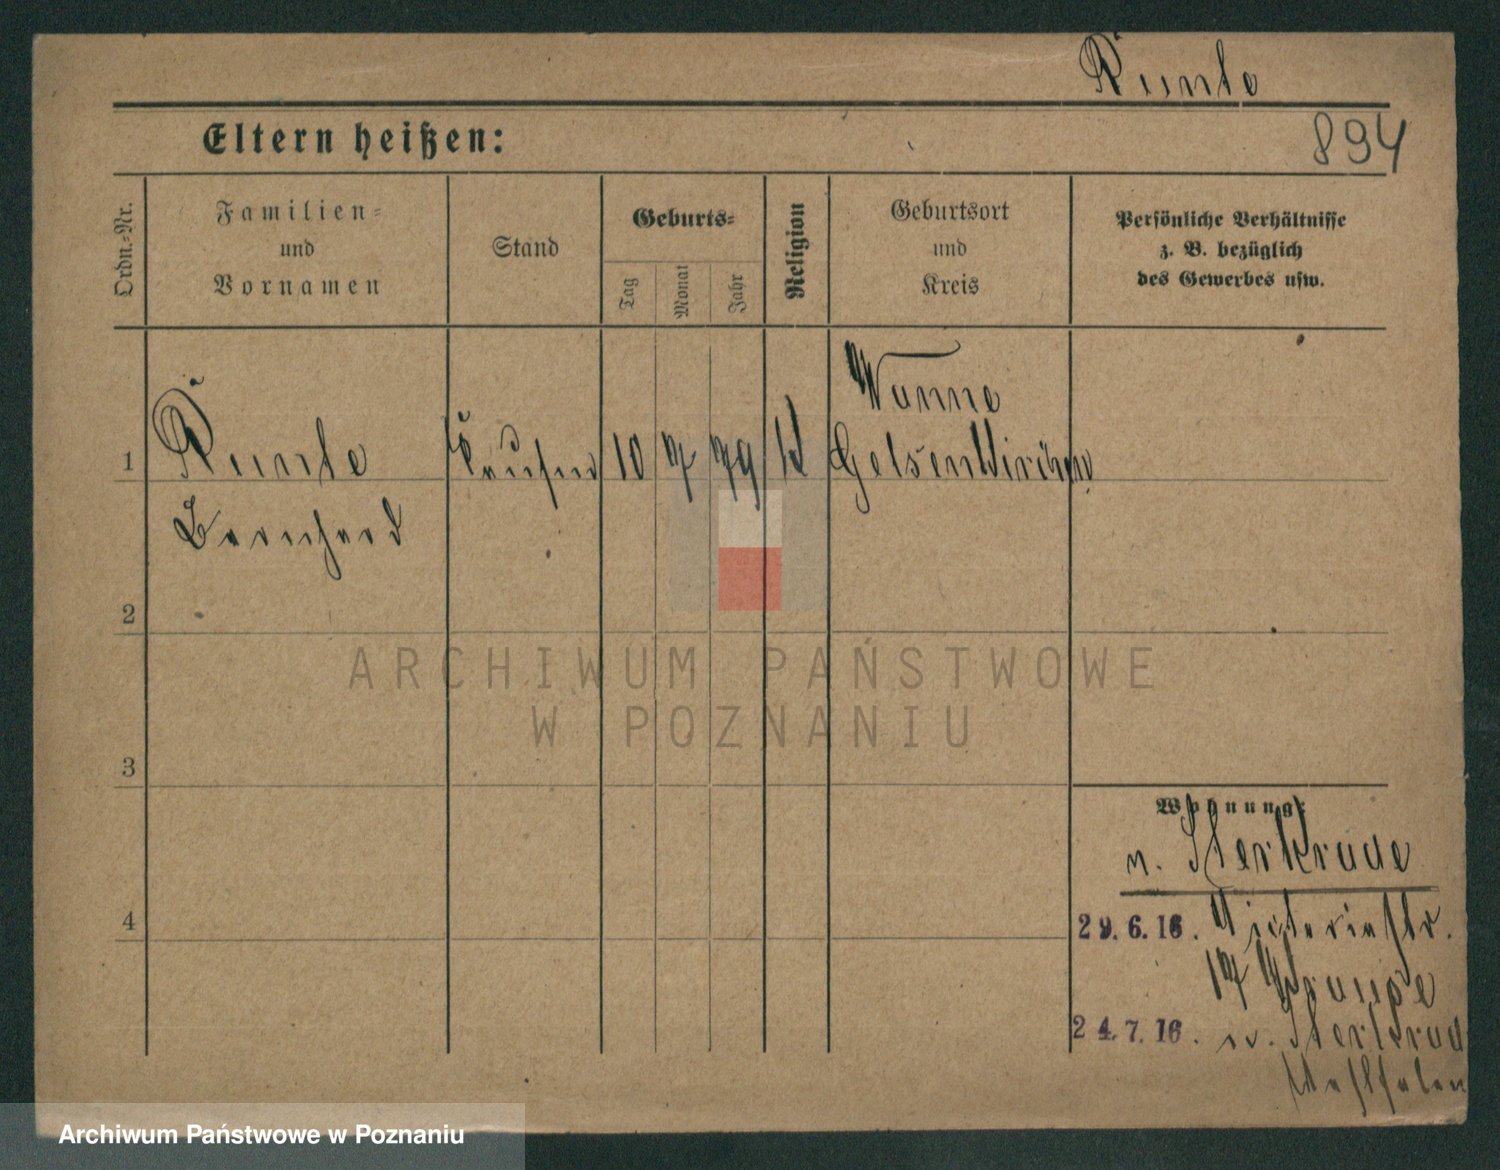 Runte
894
Eltern heißen:
Ordn.-Nr.
Familien-
und
Vornamen
Stand
Geburts-
Tag
Monat
Jahr
Religion
Geburtsort
und
Kreis
Persönliche Verhältnisse
z. B. bezüglich
des Gewerbes usw.
Wanne
1 Runte 10 7 79 k Gelsenkirchen
Bernhard
2
ARCHIWUM PAŃSTWOWE
W POZNANIU
3
Wohnung:
n. Sterkrade
4
29.6.16. Victoriastr.
17
24.7.16. n. Sterkrad
Westfalen
Archiwum Państwowe w Poznaniu